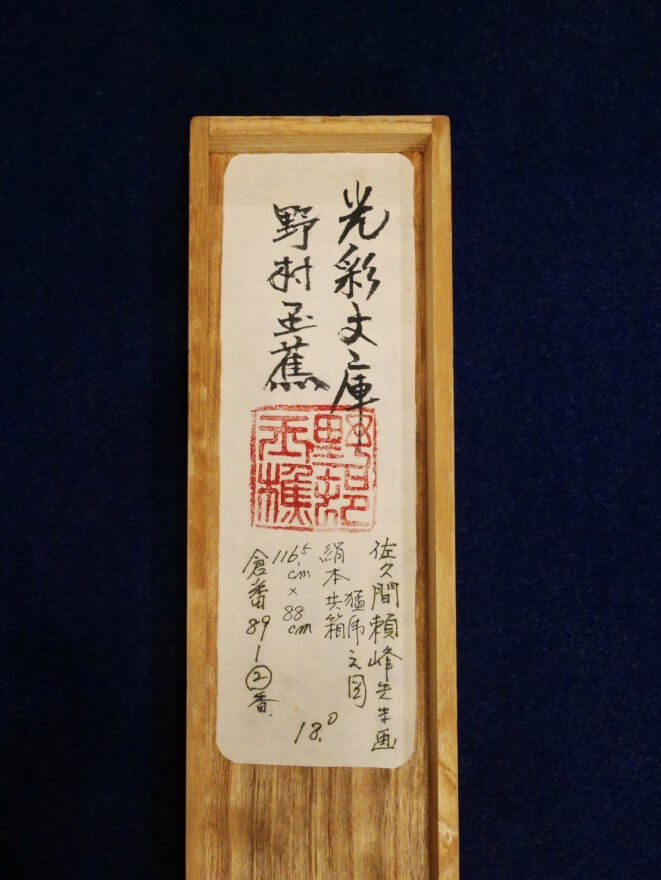 光彩文庫
野村玉蕉
野邨
玉樵
佐久間頼峰先生画
猛虎之図
絹本共箱
116.5cm×88cm
倉番89-②番
18.0